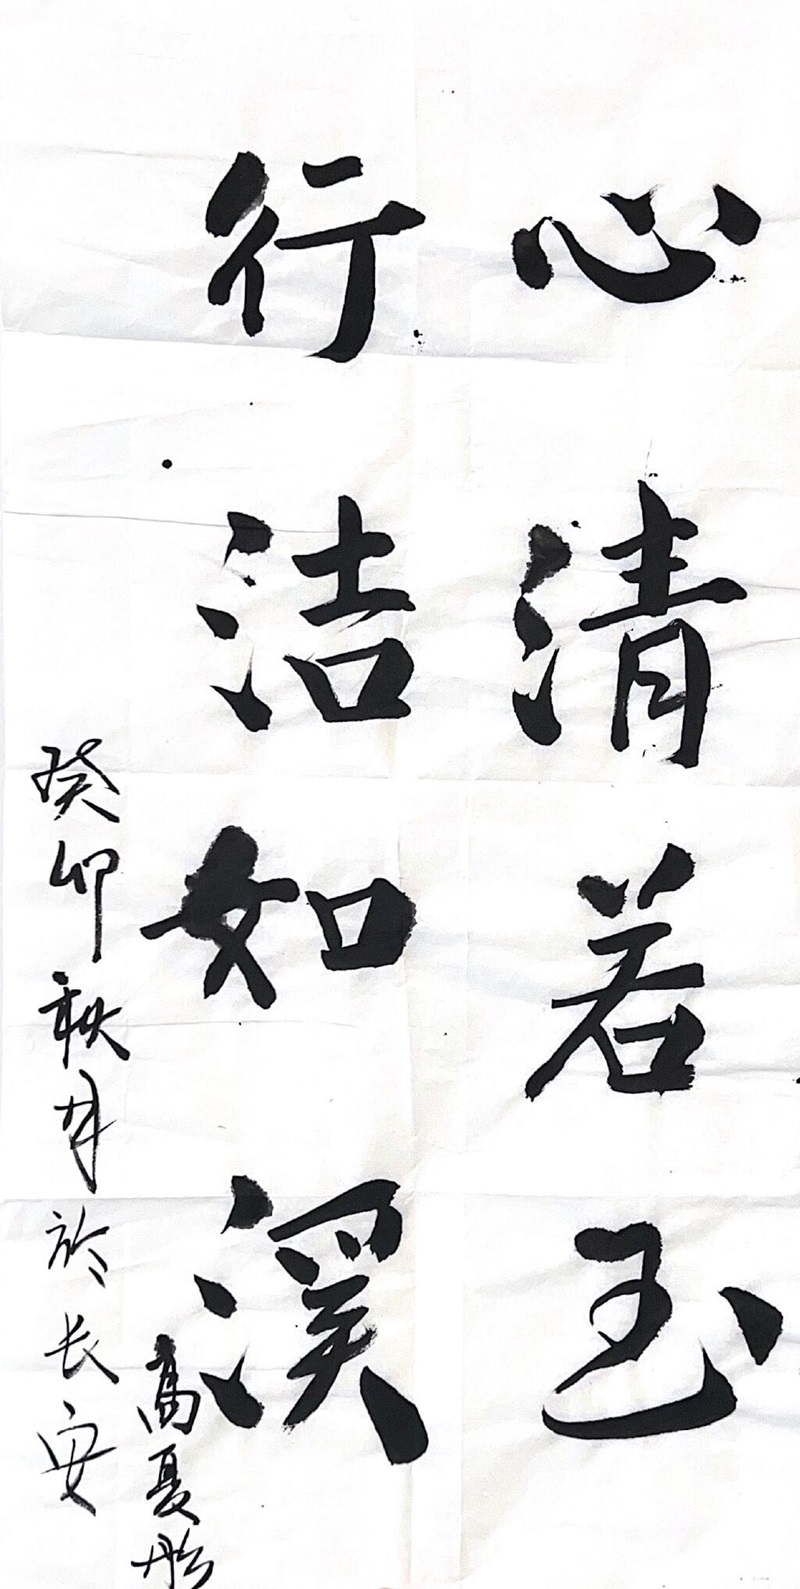 心清若玉
行洁如溪
癸卯秋月於长安
高夏彤